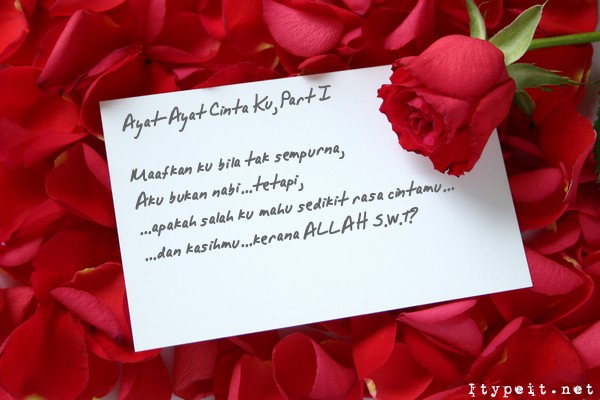 Ayat-Ayat Cinta Ku, Part I
Maafkan ku bila tak sempurna,
Aku bukan nabi...tetapi,
...apakah salah ku mahu sedikit rasa cintamu...
...dan kasihmu...kerana ALLAH S.W.T?
Itypeit.net